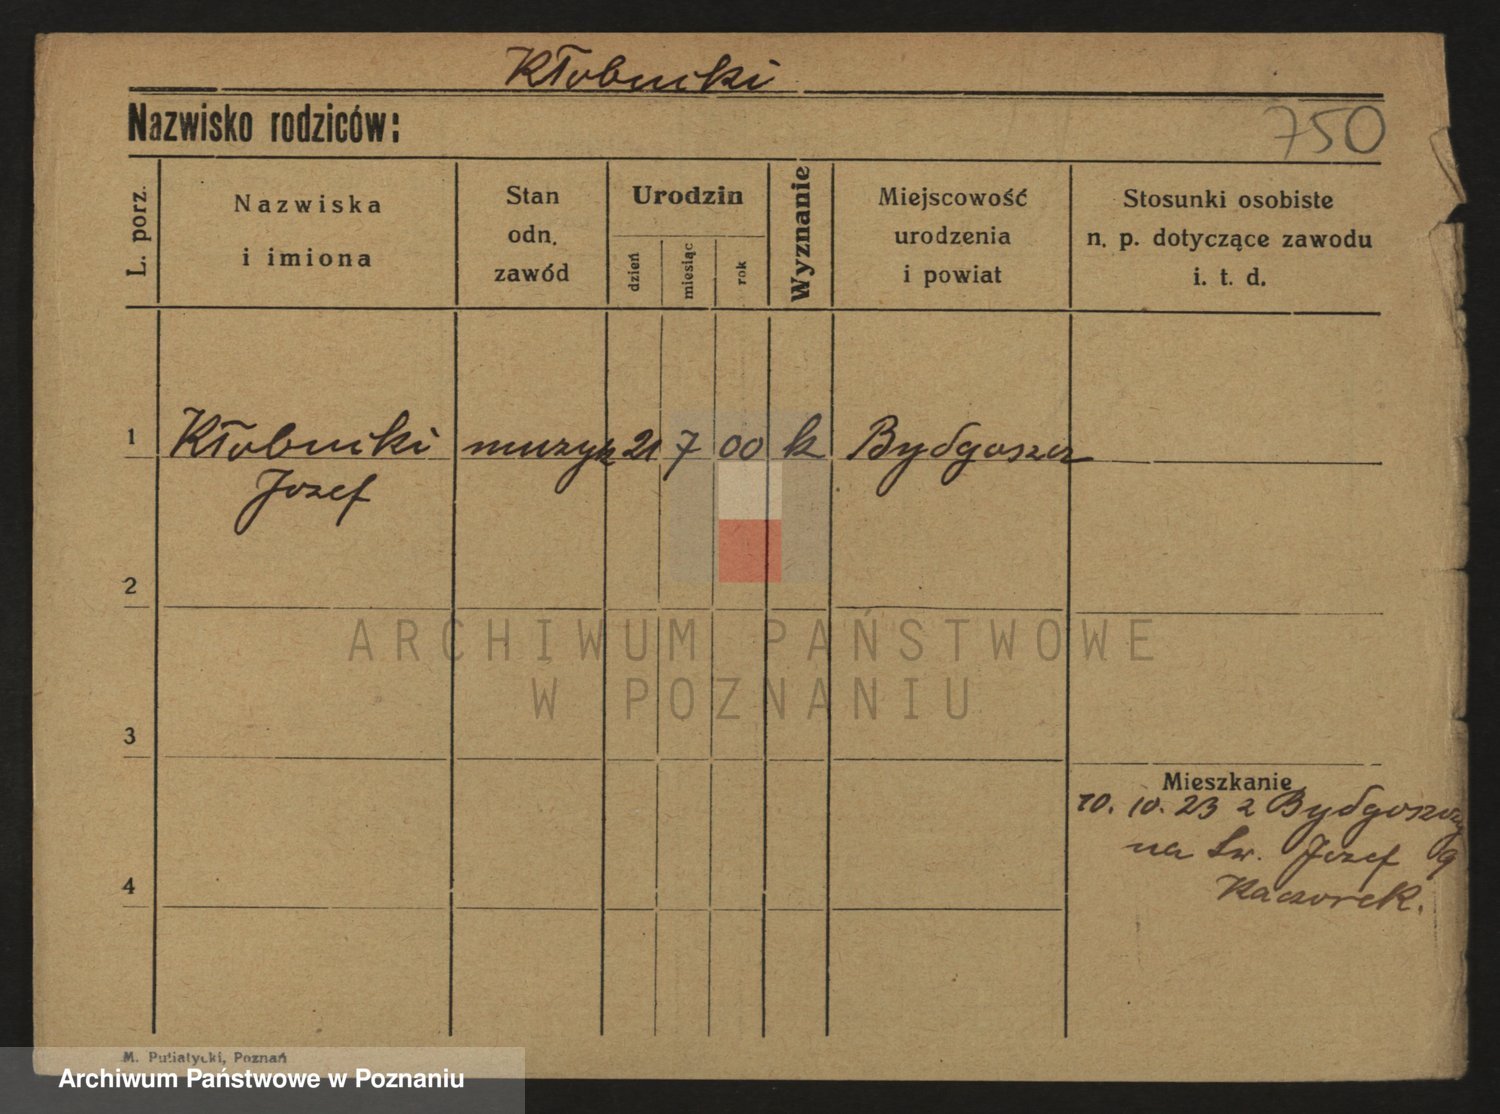 Kłobucki
Nazwisko rodziców:
750
L. porz.
Nazwiska
i imiona
Stan
odn.
zawód
Urodzin
dzień
miesiąc
rok
Wyznanie
Miejscowość
urodzenia
i powiat
Stosunki osobiste
n. p. dotyczące zawodu
i. t. d.
1 Kłobucki muzyk 21 7 00 k Bydgoszcz
Jozef
2
ARCHIWUM PAŃSTWOWE
W POZNANIU
3
Mieszkanie
10. 10. 23 z Bydgoszczy
na Św. Jozef 9
Kaczorek.
4
M. Putiatycki, Poznań
Archiwum Państwowe w Poznaniu